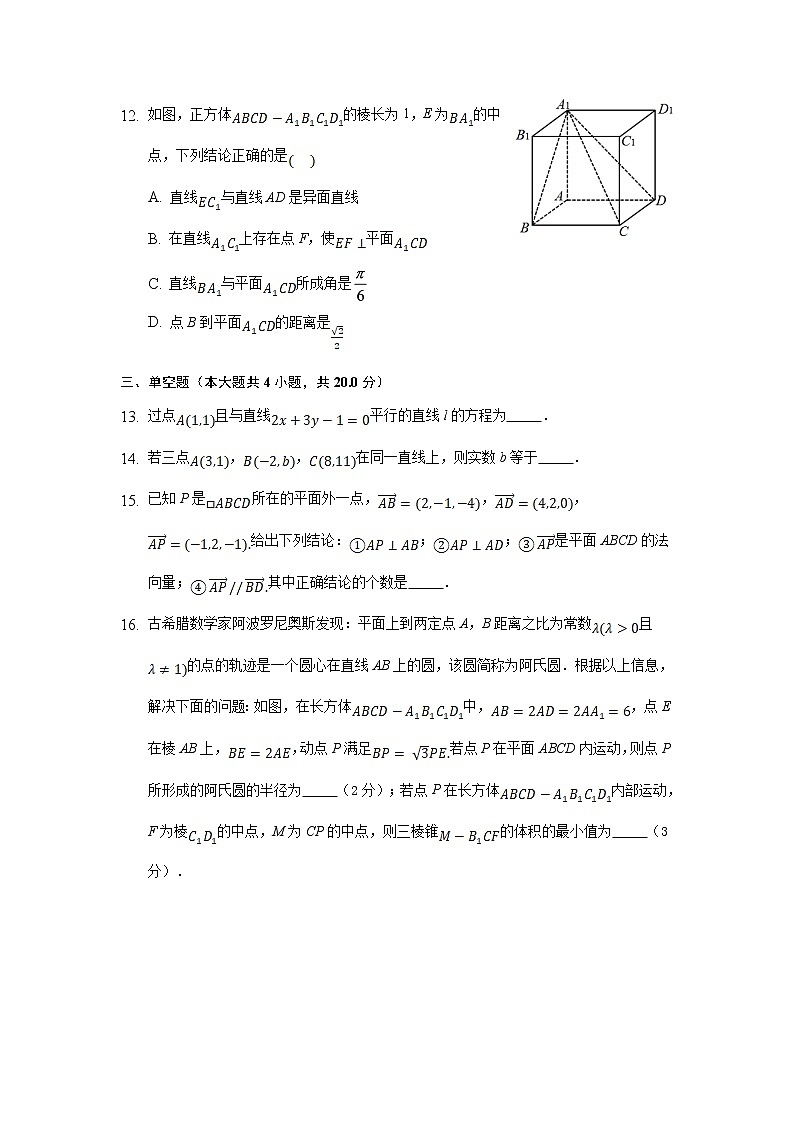 12. 如图，正方体ABCD－A₁B₁C₁D₁的棱长为1，E为BA₁的中
点，下列结论正确的是(   )
A. 直线EC₁与直线AD是异面直线
B. 在直线A₁C₁上存在点F，使EF⊥平面A₁CD
C. 直线BA₁与平面A₁CD所成角是π/6
D. 点B到平面A₁CD的距离是√2/2
A₁
D₁
B₁
C₁
A
D
B
C
三、单空题（本大题共4小题，共20.0分）
13. 过点A(1,1)且与直线2x＋3y－1＝0平行的直线l的方程为_____．
14. 若三点A(3,1)，B(－2,b)，C(8,11)在同一直线上，则实数b等于_____．
15. 已知P是□ABCD所在的平面外一点，AB→＝(2,－1,－4)，AD→＝(4,2,0)，
AP→＝(－1,2,－1).给出下列结论：①AP⊥AB；②AP⊥AD；③AP→是平面ABCD的法
向量；④AP→//BD→.其中正确结论的个数是_____．
16. 古希腊数学家阿波罗尼奥斯发现：平面上到两定点A，B距离之比为常数λ(λ＞0且
λ≠1)的点的轨迹是一个圆心在直线AB上的圆，该圆简称为阿氏圆．根据以上信息，
解决下面的问题：如图，在长方体ABCD－A₁B₁C₁D₁中，AB＝2AD＝2AA₁＝6，点E
在棱AB上，BE＝2AE，动点P满足BP＝√3PE.若点P在平面ABCD内运动，则点P
所形成的阿氏圆的半径为_____（2分）；若点P在长方体ABCD－A₁B₁C₁D₁内部运动，
F为棱C₁D₁的中点，M为CP的中点，则三棱锥M－B₁CF的体积的最小值为_____（3
分）．